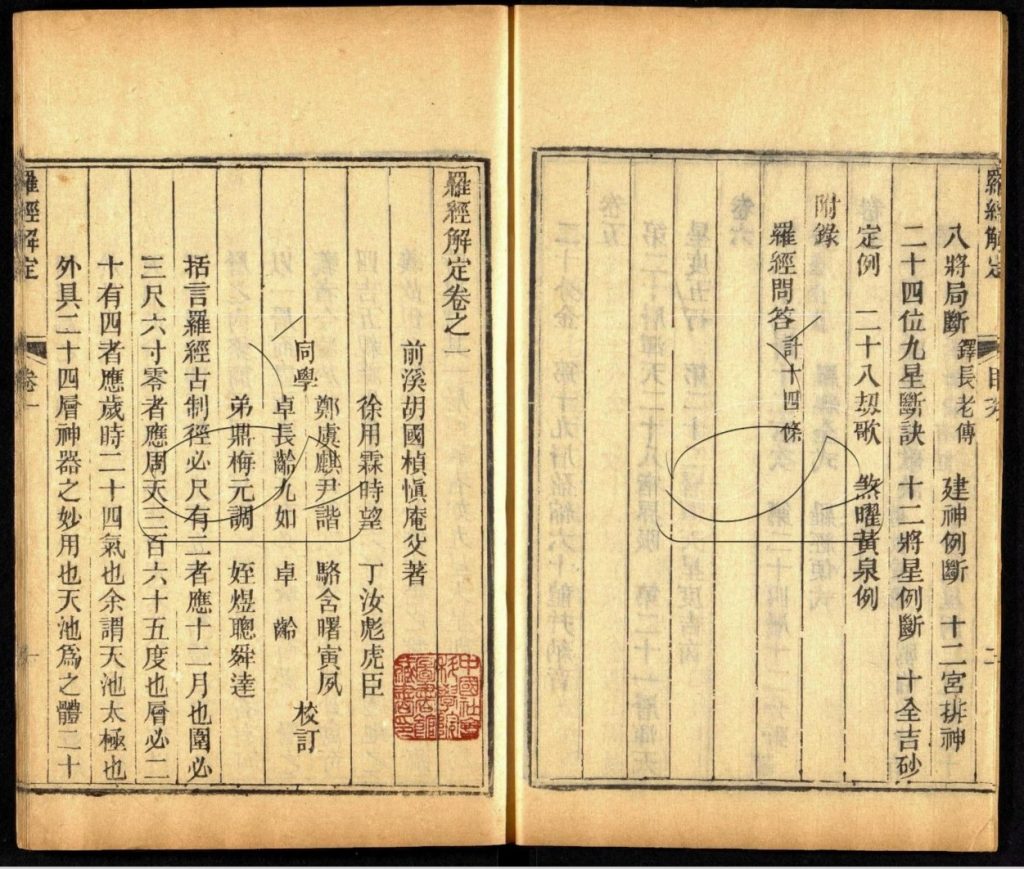 羅經解定
八將局斷 鐸長老傳 建神例斷 十二宮排神
二十四位九星斷訣 十二將星例斷 十全吉砂
定例 二十八刼歌 煞曜黃泉例
附錄
羅經問答 計十四條
羅經解定卷之一
前溪胡國楨慎庵父著
徐用霖時望 丁汝彪虎臣
鄭虞麒尹諧 駱含曙寅夙
同學 校訂
卓長齡九如 卓 齡
弟鼎梅元調 姪煜聰舜達
括言羅經古制徑必尺有二者應十二月也圍必
三尺六寸零者應周天三百六十五度也層必二
十有四者應歲時二十四氣也余謂天池太極也
外具二十四層神器之妙用也天池爲之體二十
羅經解定 卷一